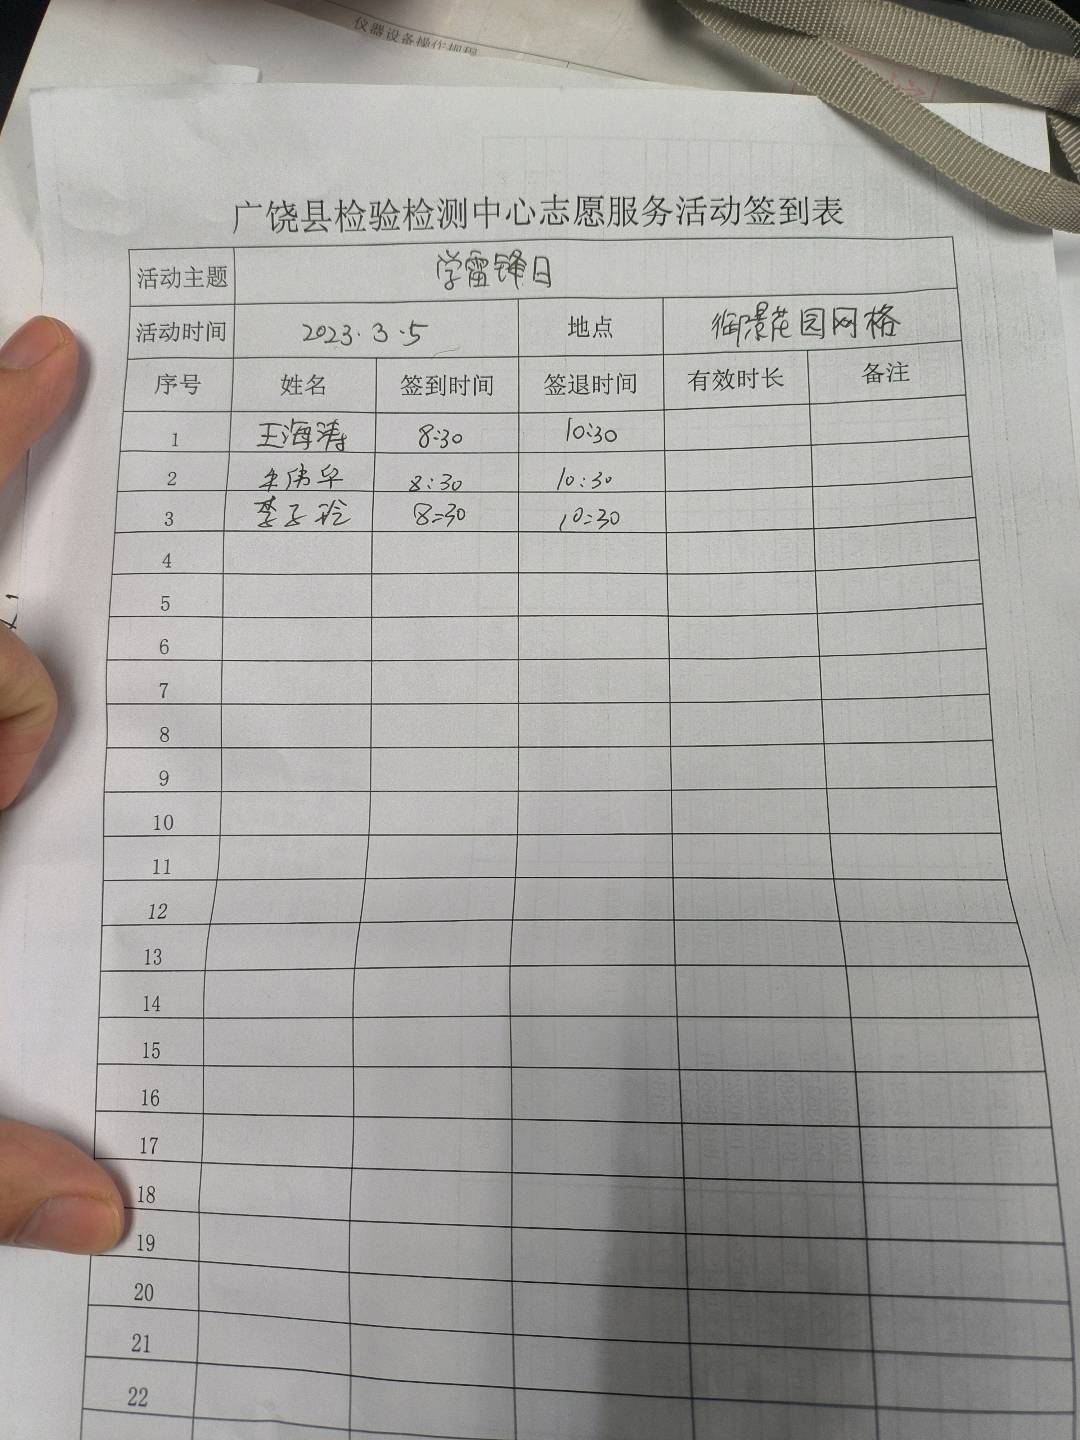 仪器设备操作规程
广饶县检验检测中心志愿服务活动签到表
活动主题 学雷锋日
活动时间 2023.3.5 地点 御景花园网格
序号 姓名 签到时间 签退时间 有效时长 备注
1 王海涛 8:30 10:30
2 朱伟华 8:30 10:30
3 李子玲 8:30 10:30
4
5
6
7
8
9
10
11
12
13
14
15
16
17
18
19
20
21
22